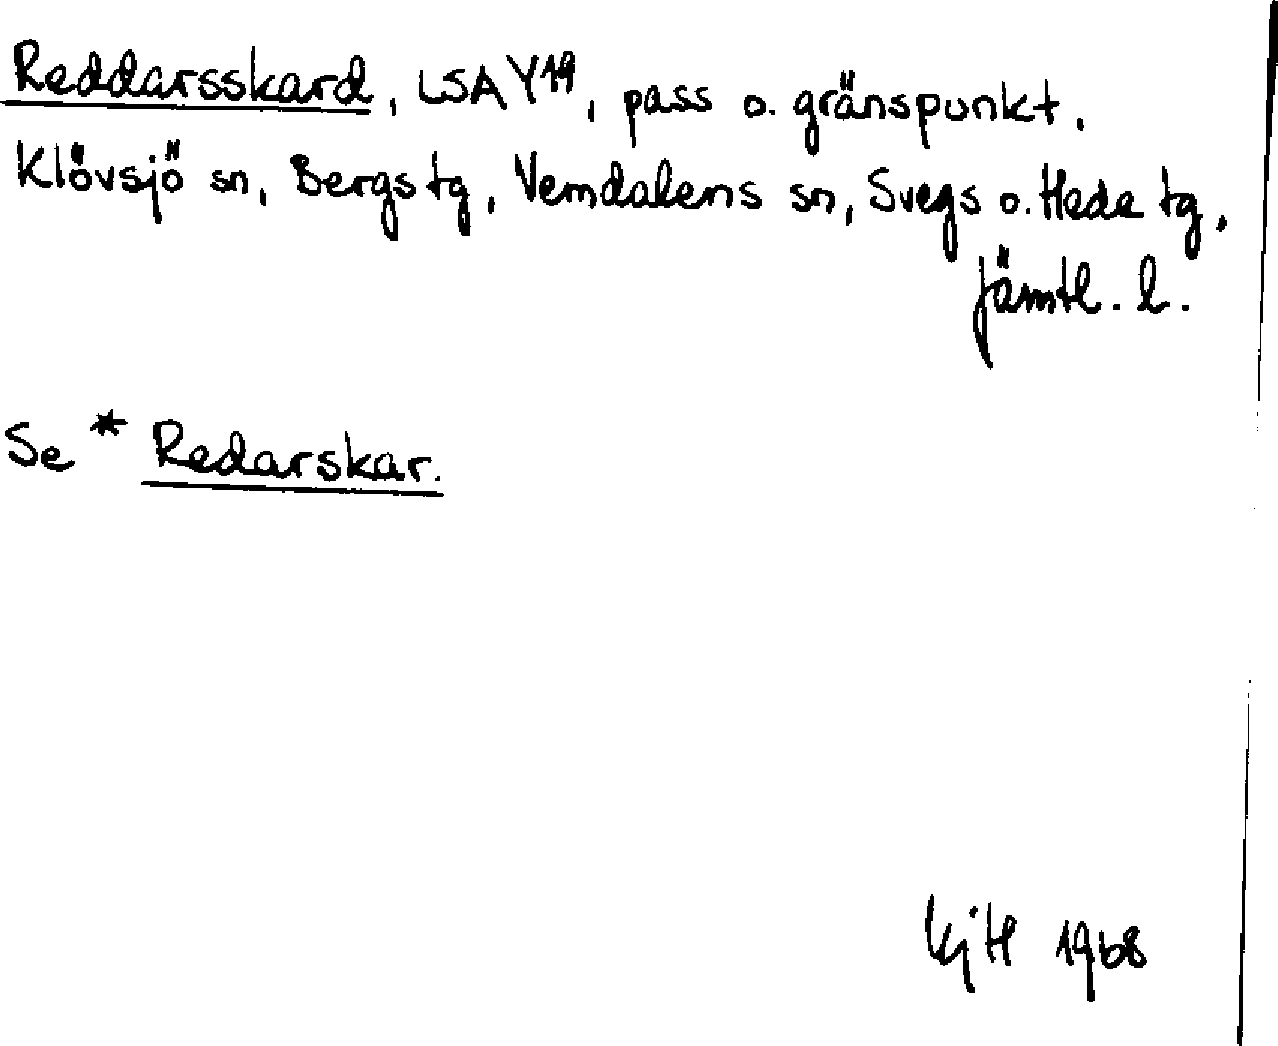 Reddarsskard, LSA Y19, pass o. gränspunkt.
Klövsjö sn, Bergs tg, Vemdalens sn, Svegs o. Hede tg,
Jämtl. l.
Se * Redarskar.
1968